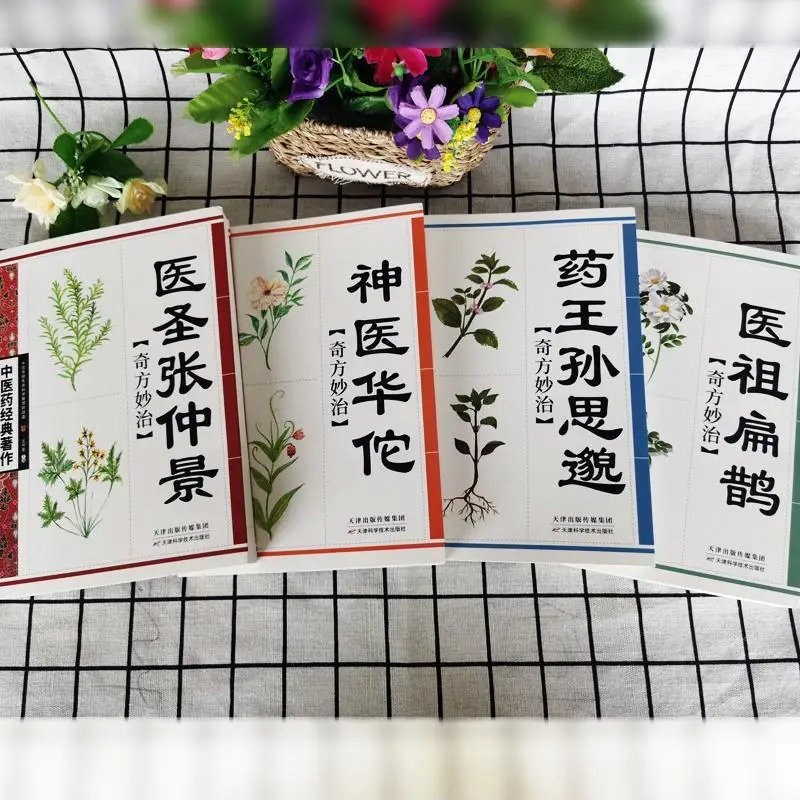 FLOWER
医圣张仲景
【奇方妙治】
中医药经典著作
天津出版传媒集团
天津科学技术出版社
神医华佗
【奇方妙治】
天津出版传媒集团
天津科学技术出版社
药王孙思邈
【奇方妙治】
天津出版传媒集团
天津科学技术出版社
医祖扁鹊
【奇方妙治】
天津出版传媒集团
天津科学技术出版社